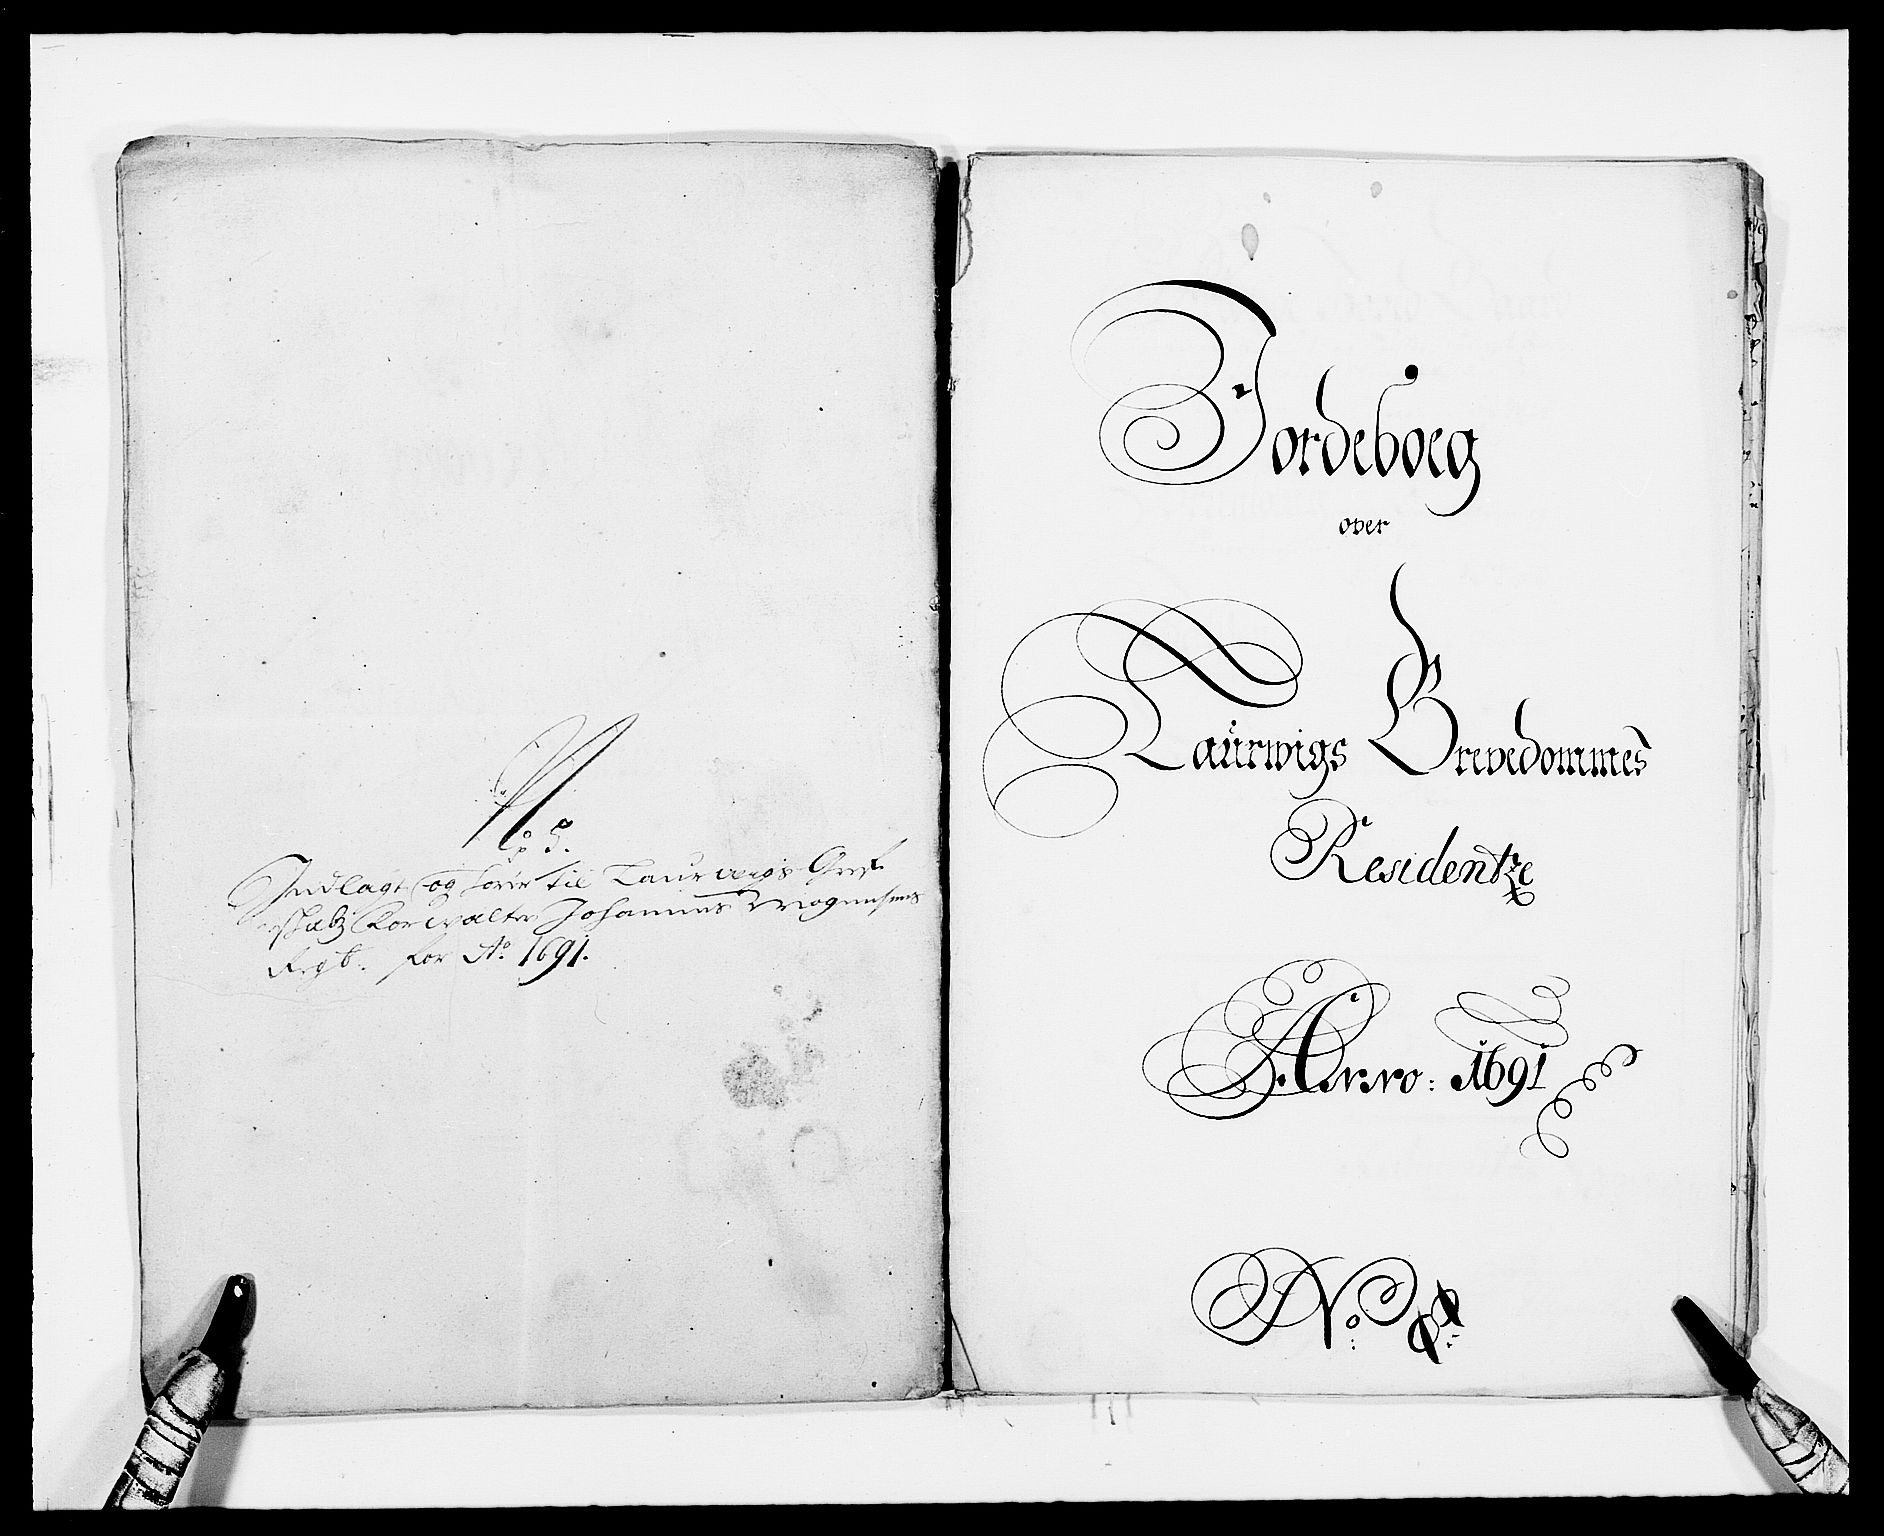 No 5.
Indlagt og hörer til Laurwigs Gref-
schabs Forwalter Johannes Mogensens
Regb. for Ao 1691.
Jordeboeg
over
Laürwigs Grevedommes
Residentze
Anno: 1691
No: